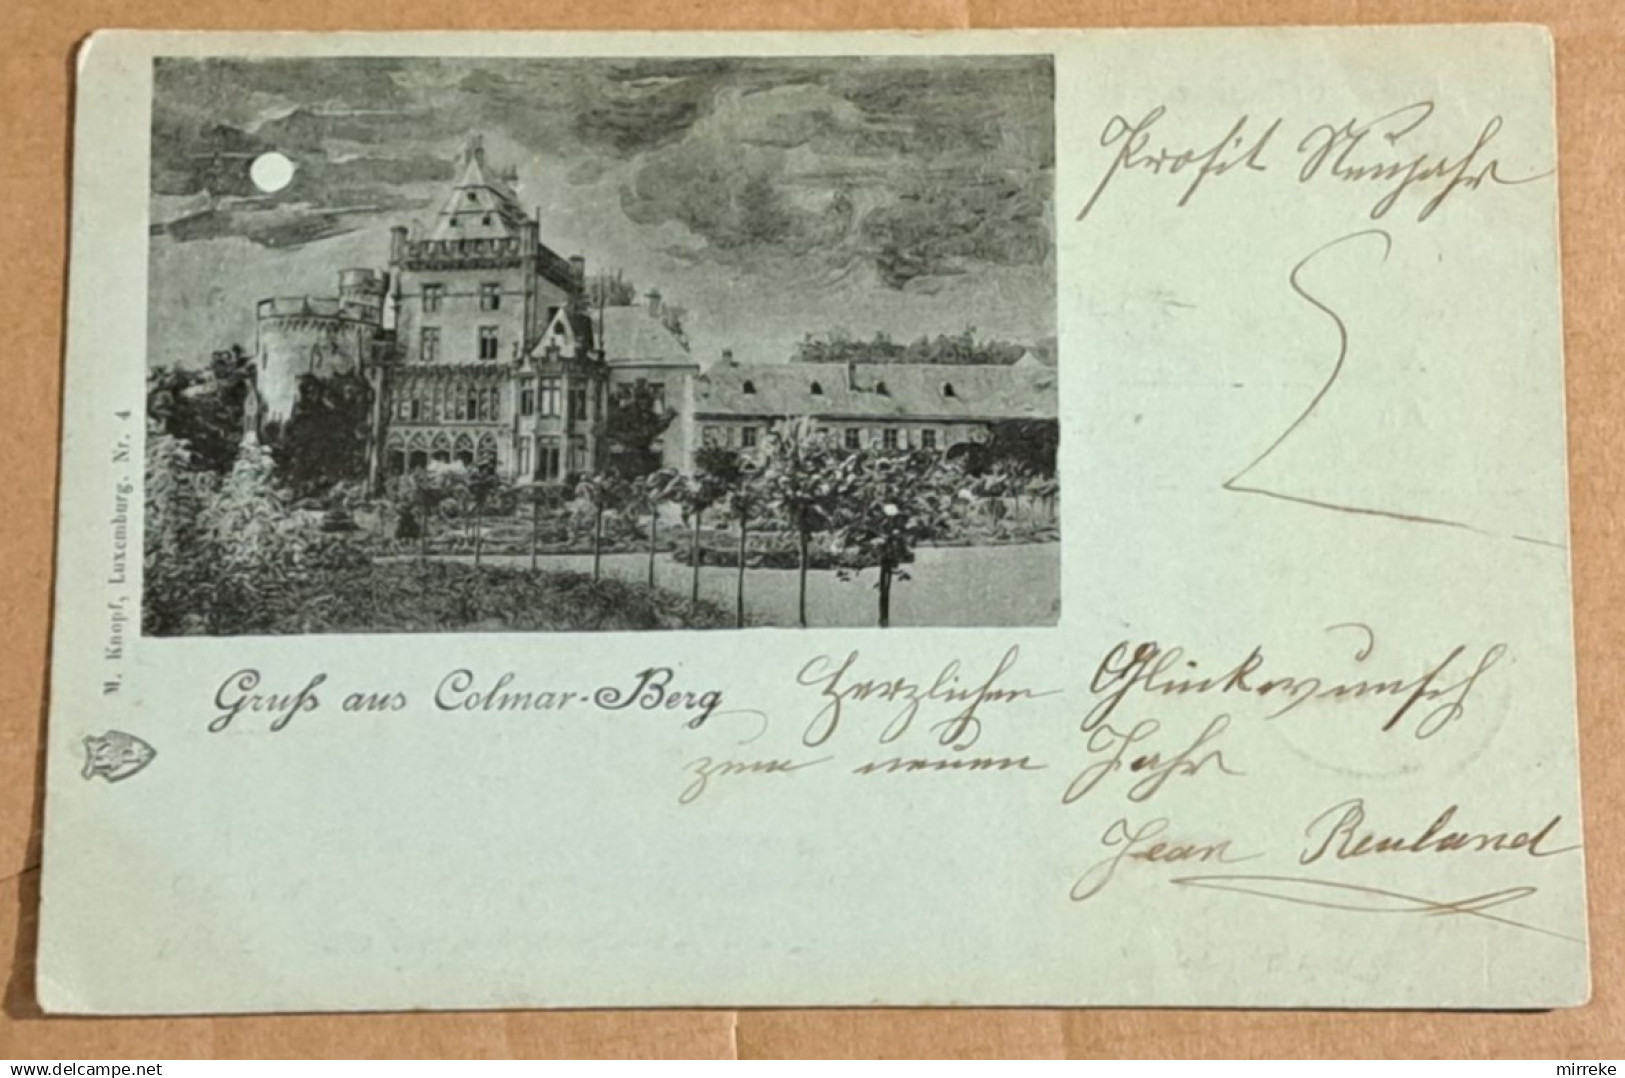 Prosit Neujahr
M. Knopf, Luxemburg. Nr. 4
Gruß aus Colmar-Berg
Herzlichen Glückwunsch
zum neuen Jahr
Jean Reuland
mirreke